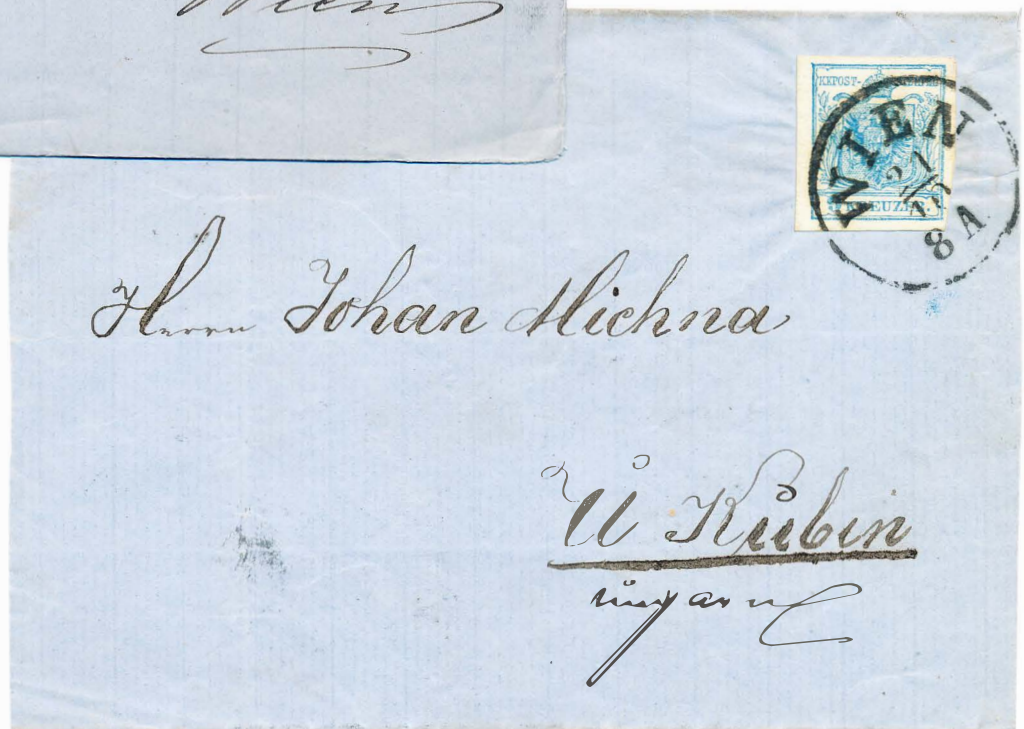 Wien
KKPOST-
WIEN
21
8 A
9 KREUZER
Herrn Johan Michna
U Kubin
ungarn